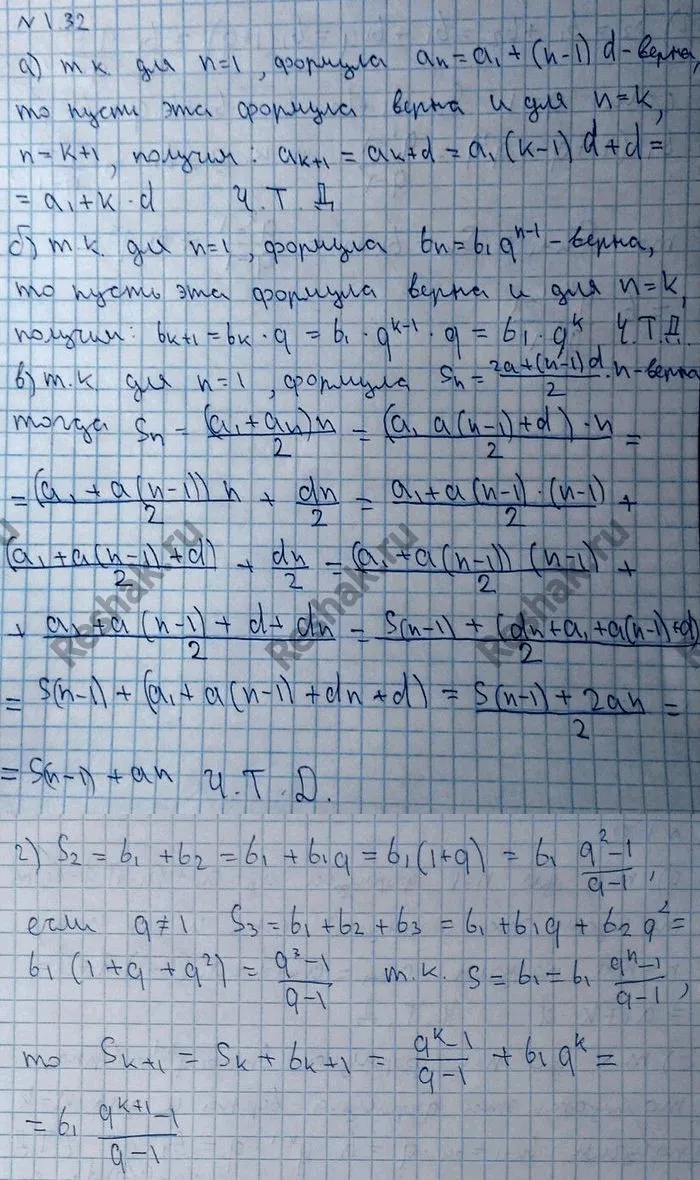 №1.32
а) т.к. для n=1, формула an=a₁+(n-1)d-верна,
то пусть эта формула верна и для n=k,
n=k+1, получим: ak+1=ak+d=a₁(k-1)d+d=
=a₁+k·d Ч.Т.Д
б) т.к. для n=1, формула bn=b₁qⁿ⁻¹-верна,
то пусть эта формула верна и для n=k,
получим: bk+1=bk·q=b₁·q^(k-1)·q=b₁·q^k Ч.Т.Д.
в) т.к для n=1, формула Sn=(2a+(n-1)d)/2·n-верна
тогда Sn=(a₁+an)n/2=(a₁ a(n-1)+d)·n/2=
=(a₁+a(n-1))n/2+dn/2=a₁+a(n-1)·(n-1)/2+
(a₁+a(n-1)+d)/2+dn/2=(a₁+a(n-1))(n-1)/2+
+a₁+a(n-1)+d+dn/2=S(n-1)+(dn+a₁+a(n-1)+d)/2
=S(n-1)+(a₁+a(n-1)+dn+d)=S(n-1)+2an/2=
=S(n-1)+an Ч.Т.Д.
г) S₂=b₁+b₂=b₁+b₁q=b₁(1+q)=b₁ (q²-1)/(q-1),
если q≠1 S₃=b₁+b₂+b₃=b₁+b₁q+b₂q²=
b₁(1+q+q²)=(q³-1)/(q-1) т.к. S=b₁=b₁ (qⁿ-1)/(q-1),
то Sk+1=Sk+bk+1=(q^k-1)/(q-1)+b₁q^k=
=b₁ (q^(k+1)-1)/(q-1)
Reshak.ru
Reshak.ru
Reshak.ru